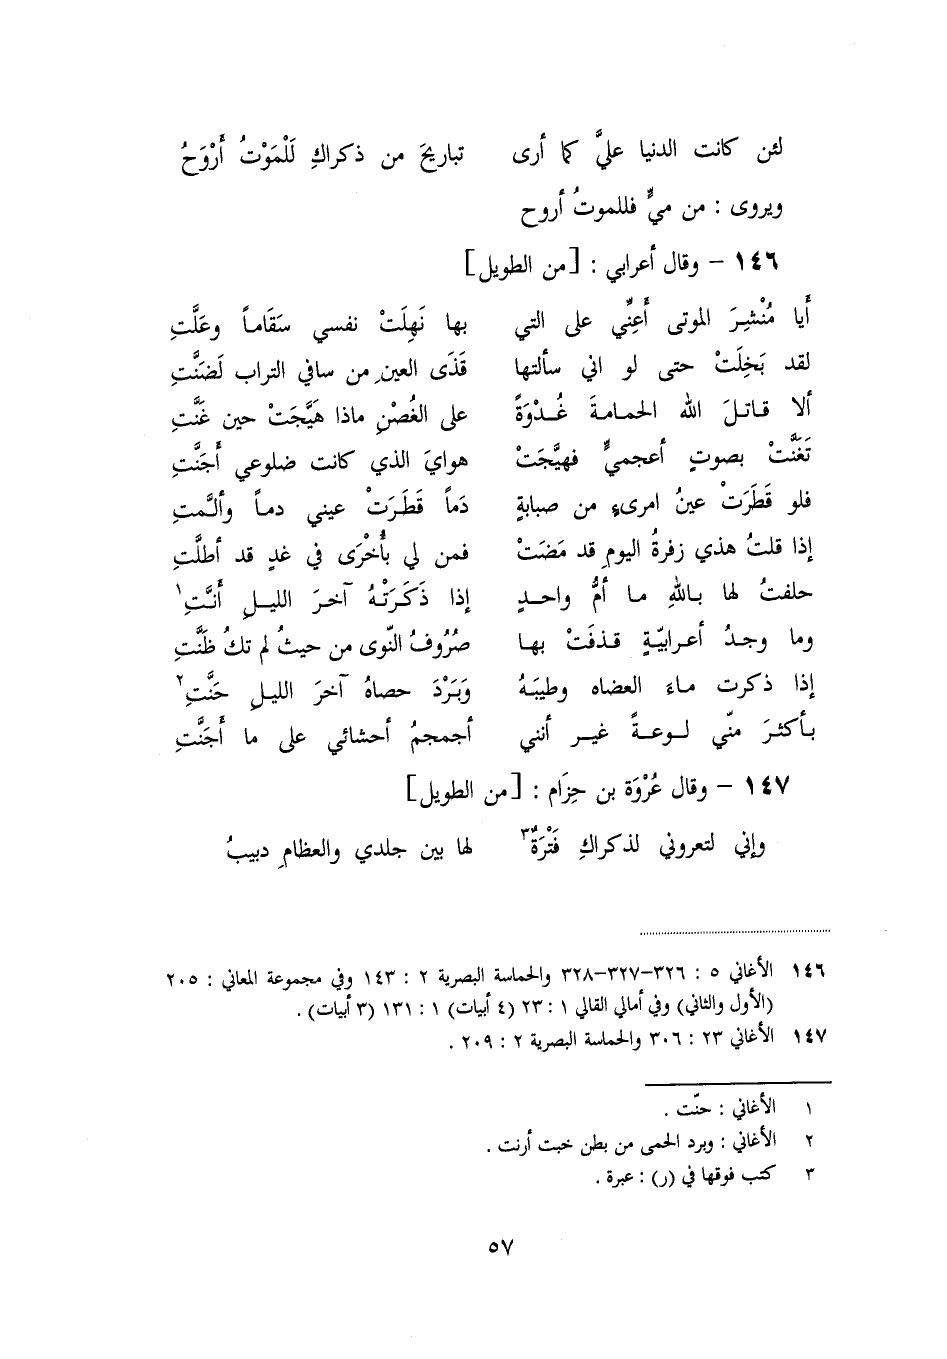 لئن كانت الدنيا عليَّ كما أرى تباريحَ من ذكراكِ لَلْمَوْتُ أَرْوَحُ
ويروى : من ميٍّ فللموتُ أروح
١٤٦ – وقال أعرابي : [من الطويل]
أَيا مُنْشِرَ الموتى أَعِنِّي على التي بها نَهِلَتْ نفسي سَقَاماً وعَلَّتِ
لقد بَخِلَتْ حتى لو اني سألتها قَذَى العينِ من سافي التراب لَضَنَّتِ
ألا قاتلَ الله الحمامةَ غُدْوَةً على الغُصْنِ ماذا هَيَّجَتْ حين غَنَّتِ
تَغَنَّتْ بصوتٍ أعجميٍّ فهيَّجَتْ هوايَ الذي كانت ضلوعي أَجَنَّتِ
فلو قَطَرَتْ عينُ امرىءٍ من صبابةٍ دَماً قَطَرَتْ عيني دماً وألَّمتِ
إذا قلتُ هذي زفرةُ اليومِ قد مَضَتْ فمن لي بأُخْرَى في غدٍ قد أطلَّتِ
حلفتُ لها باللهِ ما أمُّ واحدٍ إذا ذَكَرَتْهُ آخرَ الليلِ أَنَّتِ١
وما وجدُ أعرابيّةٍ قذفَتْ بها صُرُوفُ النّوى من حيثُ لم تكُ ظَنَّتِ
إذا ذكرت ماءَ العضاه وطيبَهُ وَبَرْدَ حصاهُ آخرَ الليلِ حَنَّتِ٢
بأكثرَ منّي لوعةً غير أنني أجمجمُ أحشائي على ما أَجَنَّتِ
١٤٧ – وقال عُرْوَة بن حِزَام : [من الطويل]
وإني لتعروني لذكراكِ فَتْرَةٌ٣ لها بين جلدي والعظامِ دبيبُ
١٤٦ الأغاني ٥ : ٣٢٦–٣٢٧–٣٢٨ والحماسة البصرية ٢ : ١٤٣ وفي مجموعة المعاني : ٢٠٥
(الأول والثاني) وفي أمالي القالي ١ : ٢٣ (٤ أبيات) ١ : ١٣١ (٣ أبيات) .
١٤٧ الأغاني ٢٣ : ٣٠٦ والحماسة البصرية ٢ : ٢٠٩ .
١ الأغاني : حنّت .
٢ الأغاني : وبرد الحمى من بطن خبت أرنت .
٣ كتب فوقها في (ر) : عبرة .
٥٧